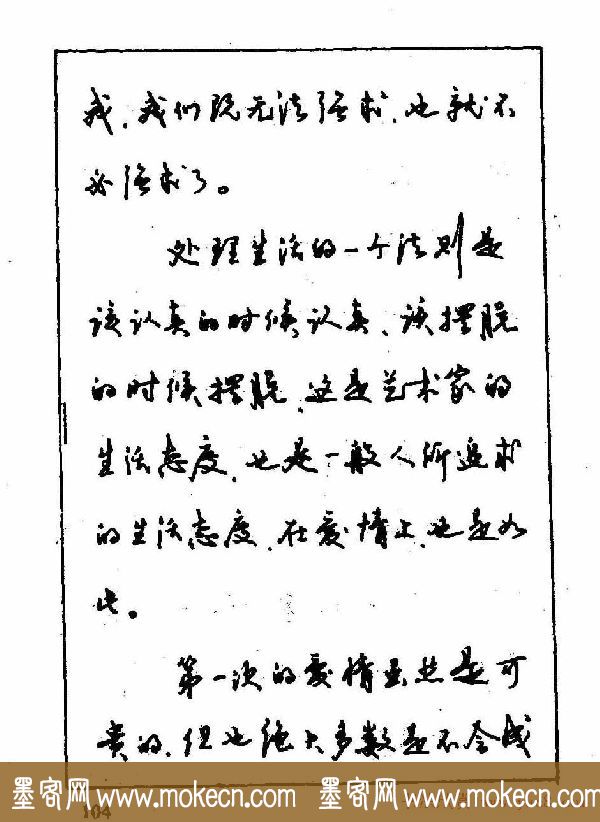 我,我们既无法强求,也就不
必强求了。
处理生活的一个法则是
该认真的时候认真、该摆脱
的时候摆脱,这是艺术家的
生活态度,也是一般人所追求
的生活态度,在爱情上,也是如
此。
第一次的爱情虽然是可
贵的,但也绝大多数是不会成
墨客网 www.mokecn.com 墨客网 www.mokecn.com
104